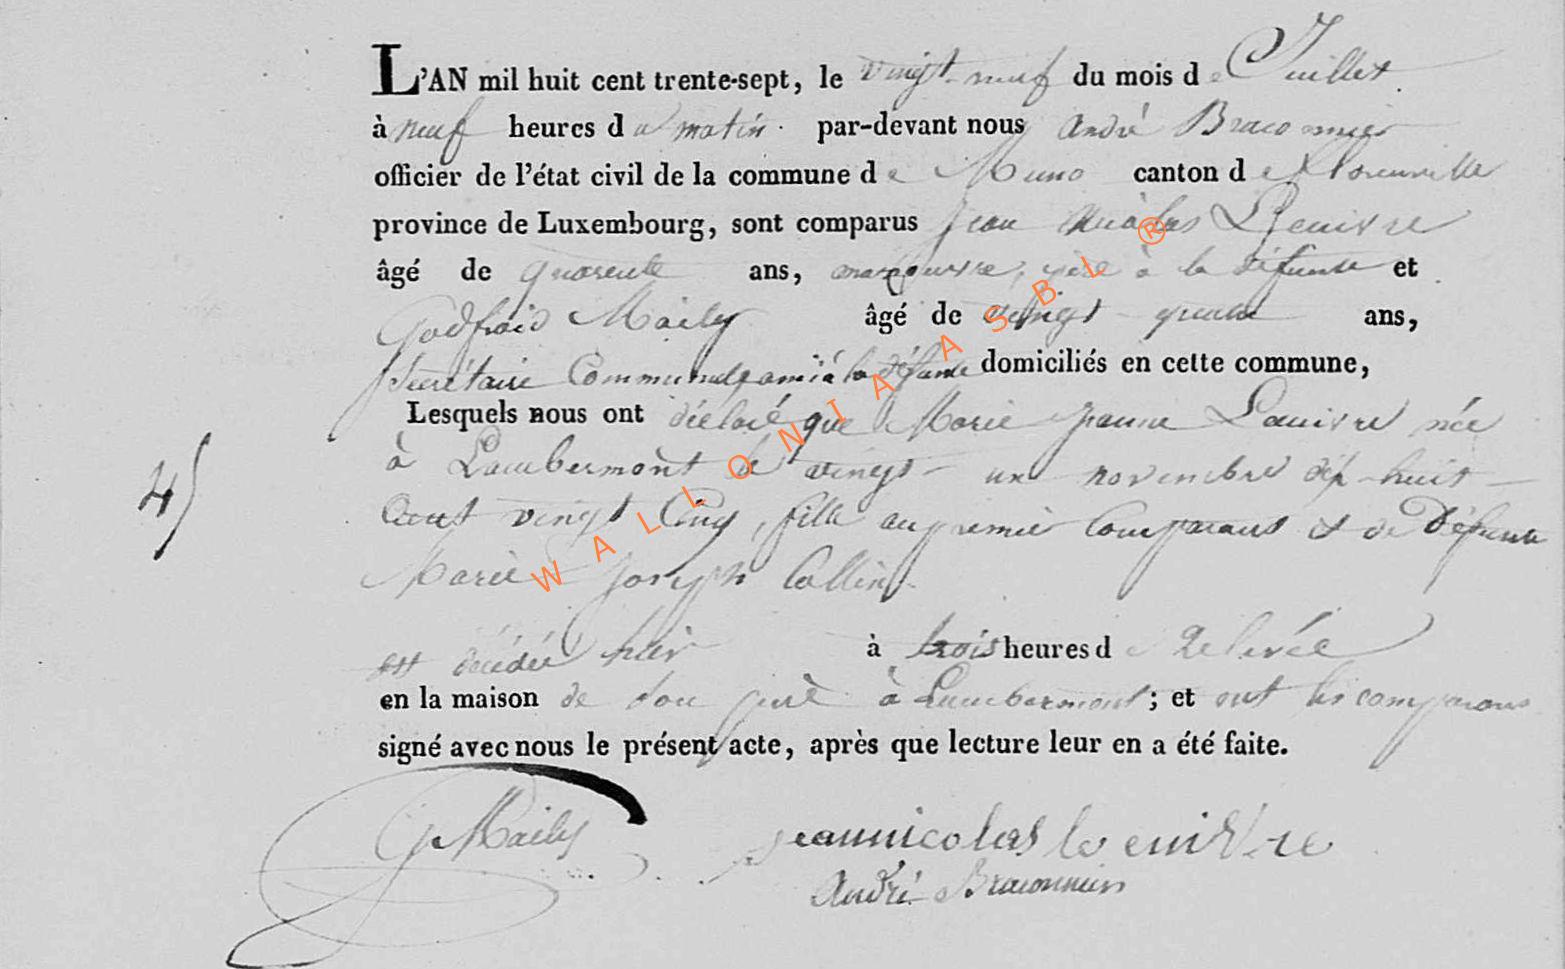 L'AN mil huit cent trente-sept, le vingt-neuf du mois de Juillet
à neuf heures du matin par-devant nous André Braconnier
officier de l'état civil de la commune de Muno canton de Florenville
province de Luxembourg, sont comparus Jean Nicolas Lecuivre
âgé de quarente ans, manoeuvre, père à la défunte et
Godfroid Maily âgé de vingt-quatre ans,
secrétaire Communal, ami à la défunte domiciliés en cette commune,
Lesquels nous ont déclaré que Marie Jeanne Lecuivre née
à Lambermont le vingt-un novembre dix-huit-
45
Cent vingt Cinq, fille au premier Comparant et de Défunte
Marie Joseph Collin
est décédée hier à trois heures de Relevée
en la maison de son père à Lambermont; et ont les comparans
signé avec nous le présent acte, après que lecture leur en a été faite.
G Maily jeannicolas le cuivre
André Braconnier
WALLONIA ASBL ®